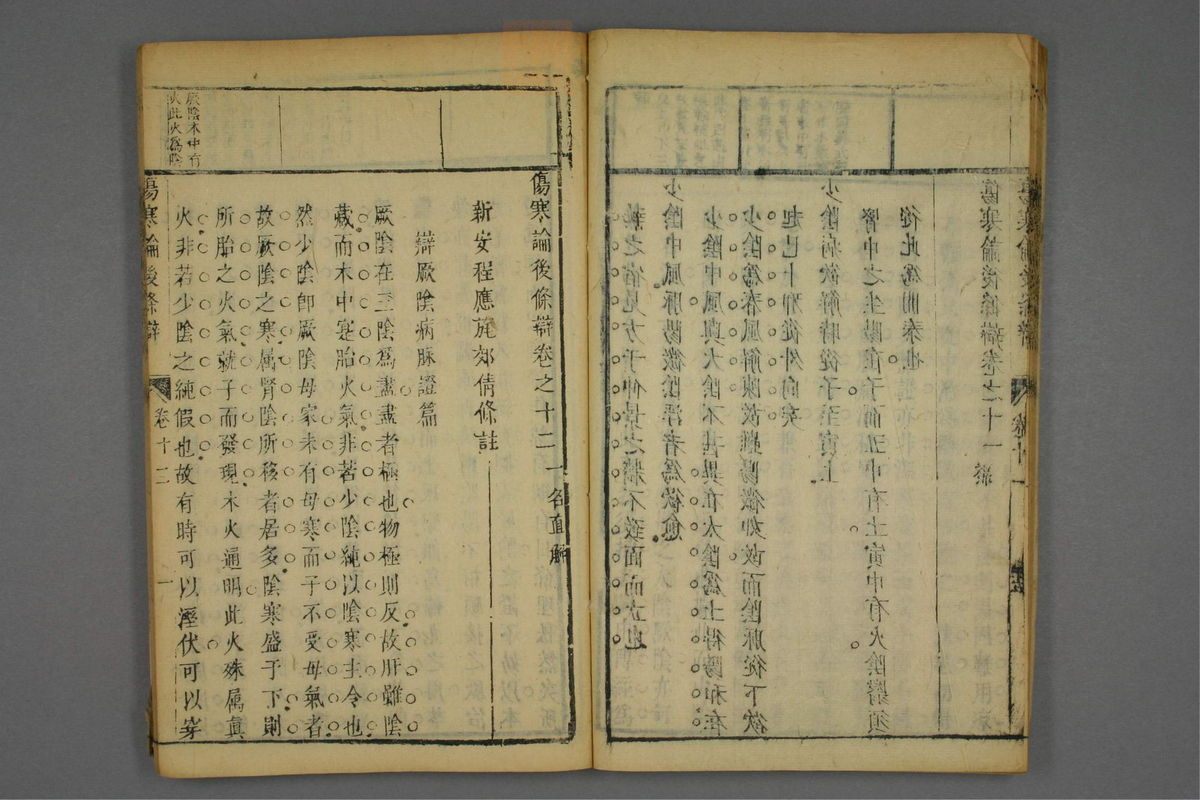 執之宿見方于仲景之將不致面而立也
少陰中風脈陽微陰浮者為欲愈
少陰中風與太陰不甚異在太陰為土得陽和在
少陰為春風解陳故雖陽微如故而陰脈從下欲
起已十邪從外向矣
少陰病欲解時從子至寅上
腎中之生陽在子而丑中有土寅中有火陰翳須
從此為開泰也
傷寒論後條辯卷之十一 終
卷十一
傷寒論後條辯卷之十二 一名直解
新安程應旄郊倩條註
辯厥陰病脉證篇
厥陰在三陰爲盡盡者極也物極則反故肝雖陰
藏而木中寔胎火氣非若少陰純以陰寒主令也
然少陰卽厥陰母家未有母寒而子不受母氣者
故厥陰之寒属腎陰所移者居多陰寒盛于下則
所胎之火氣就子而發現木火通明此火殊属眞
火非若少陰之純假也故有時可以溼伏可以穿
厥陰木中有
火此火爲陰
傷寒論後條辯
卷十二
一